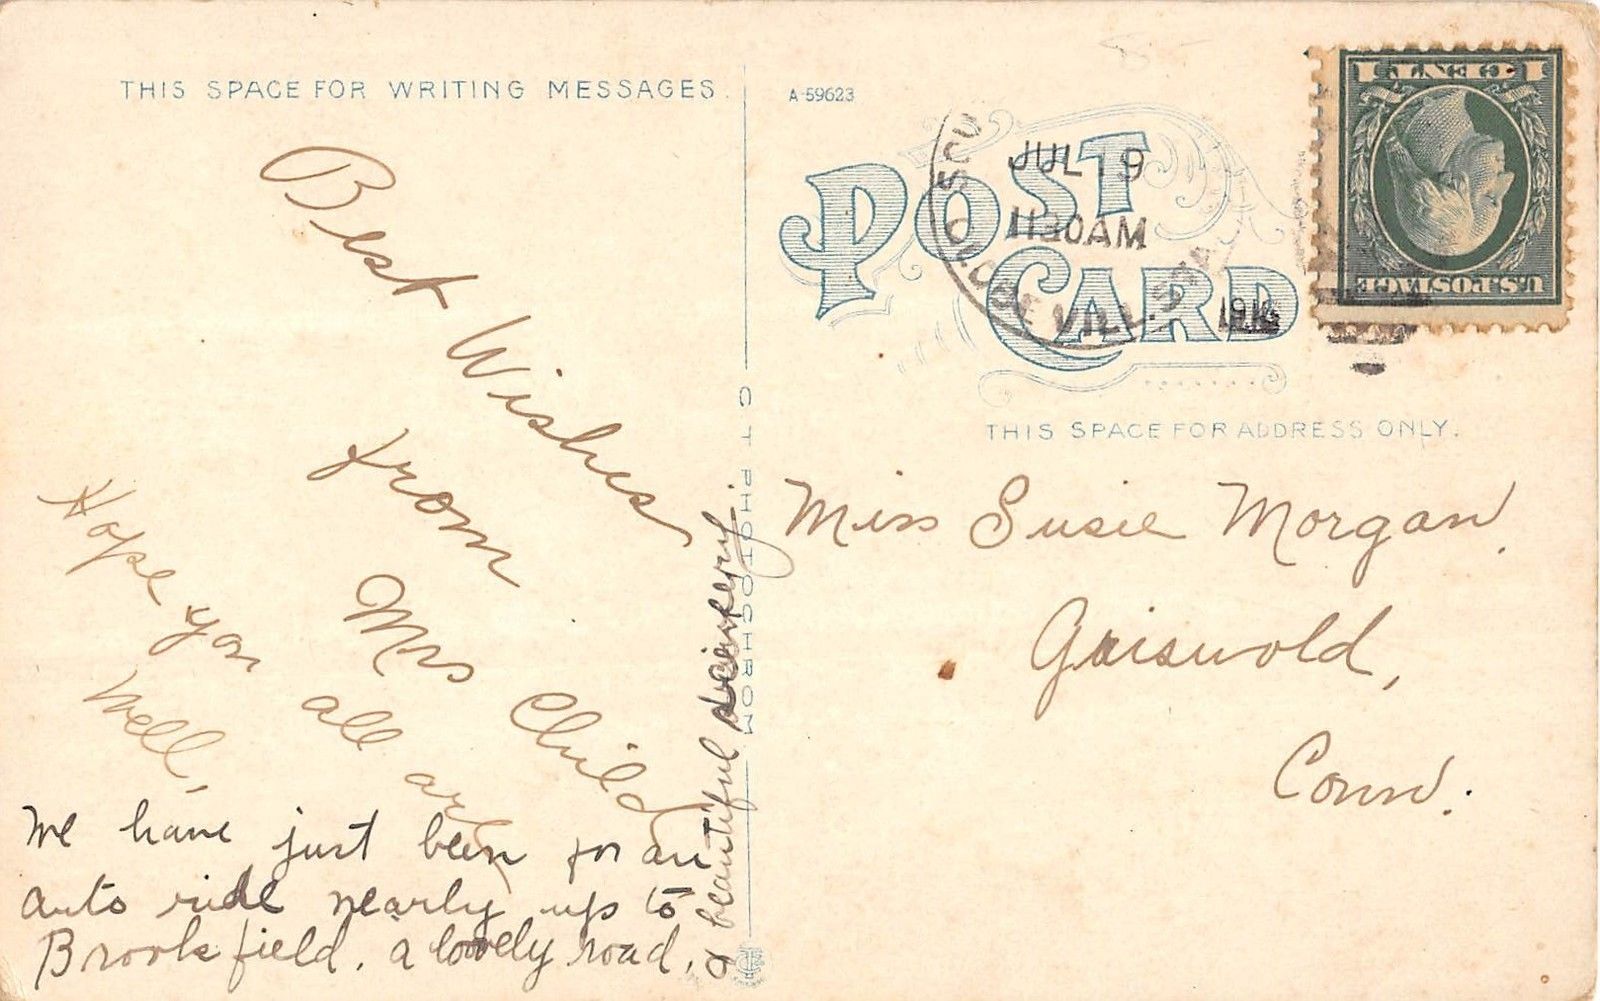 THIS SPACE FOR WRITING MESSAGES.
Best Wishes
from
Mrs Child
Hope you all are
Well,
We have just been for an
auto ride nearly up to
Brookfield. a lovely road,
& beautiful scenery.
C T PHOTOCHROM
A-59623
POST
CARD
JUL 19
1130AM
191
1 CENT 1
U.S. POSTAGE
THIS SPACE FOR ADDRESS ONLY.
Miss Susie Morgan,
Griswold,
Conn.